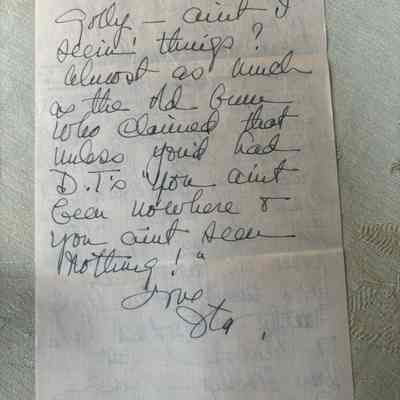 Golly — aint I
seein' things?
Almost as much
as the old bum
who claimed that
unless you'd had
D.T.'s "you aint
been nowhere &
you aint seen
nothing!"
Love
Ita.